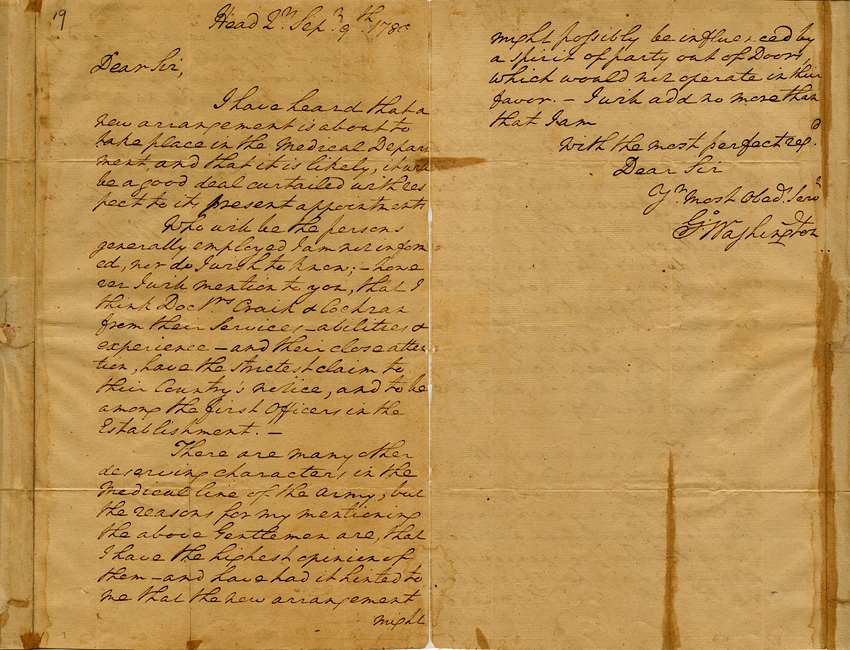 19
Head Qrs. Sepr. 9th. 1780
Dear Sir,
I have heard that a
new arrangement is about to
take place in the Medical Depart
ment, and that it is likely, it will
be a good deal curtailed with res
pect to its present appointments
Who will be the persons
generally employed I am not inform
ed, nor do I wish to know; – howe
ver I will mention to you, that I
think Doctrs. Craik & Cochran
from their Services – abilities &
experience – and their close atten
tion, have the strictest claim to
their Country's notice, and to be
among the first Officers in the
Establishment. –
There are many other
deserving characters in the
Medical line of the army, but
the reasons for my mentioning
the above Gentlemen are, that
I have the highest opinion of
them – and have had it hinted to
me that the new arrangement
might
might possibly be influenced by
a spirit of party out of Doors,
which would not operate in their
favor. – I will add no more than
that I am
With the most perfect regd.
Dear Sir
Yr. most Obedt. Servt
Go Washington